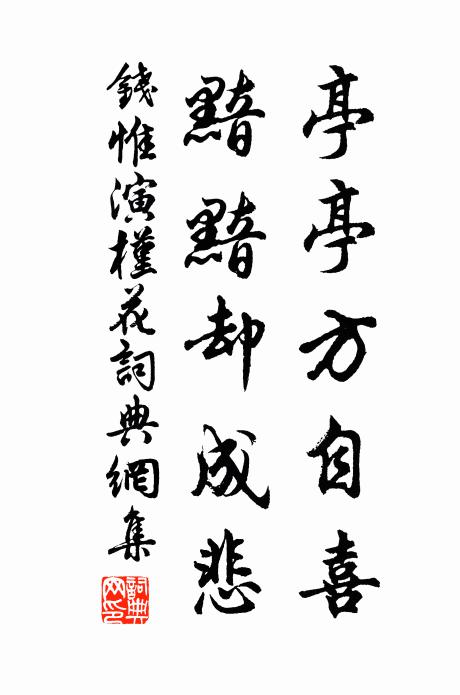 亭亭方自喜
黯黯却成悲
錢惟演槿花詞典網集
詞典網印